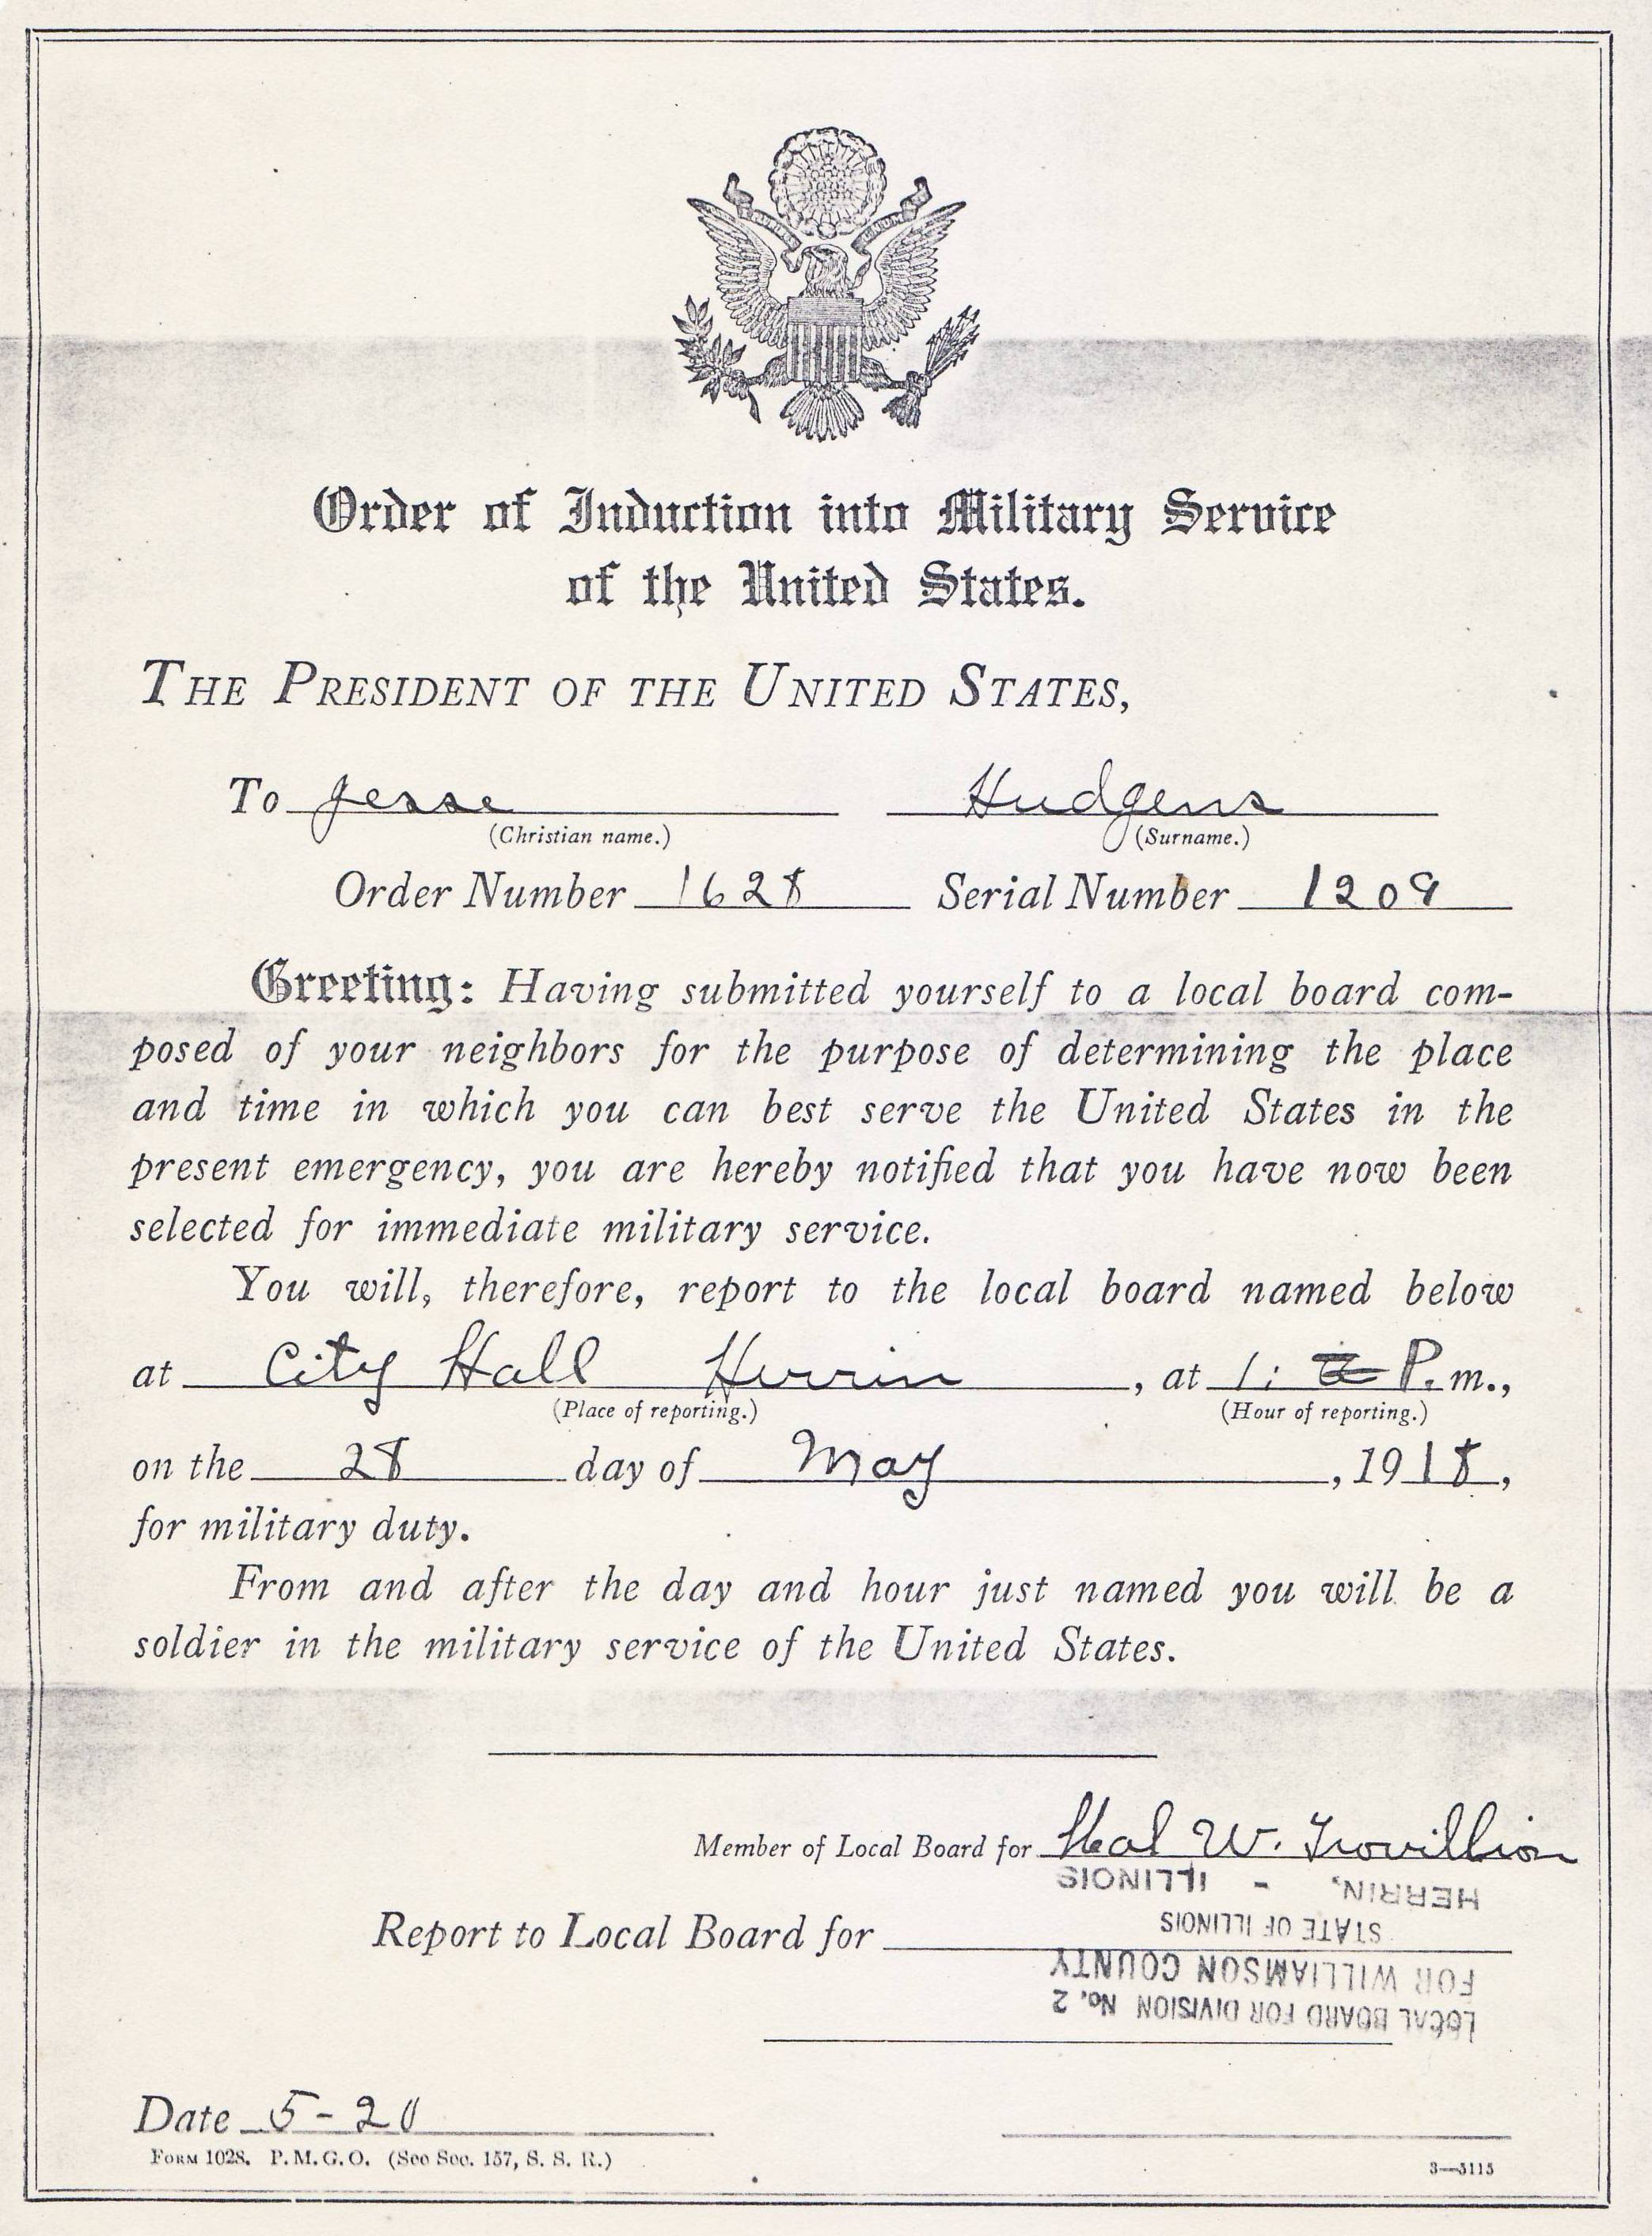 Order of Induction into Military Service
of the United States.
THE PRESIDENT OF THE UNITED STATES,
To Jesse Hudgens
(Christian name.) (Surname.)
Order Number 1628 Serial Number 1209
Greeting: Having submitted yourself to a local board com-
posed of your neighbors for the purpose of determining the place
and time in which you can best serve the United States in the
present emergency, you are hereby notified that you have now been
selected for immediate military service.
You will, therefore, report to the local board named below
at City Hall Herrin, at 1: P.m.,
(Place of reporting.) (Hour of reporting.)
on the 28 day of May, 1918,
for military duty.
From and after the day and hour just named you will be a
soldier in the military service of the United States.
Member of Local Board for Hal W. Trovillion
Report to Local Board for
LOCAL BOARD FOR DIVISION No. 2
FOR WILLIAMSON COUNTY
STATE OF ILLINOIS
HERRIN, - ILLINOIS
Date 5-20
FORM 1028. P.M.G.O. (See Sec. 157, S. S. R.)
3—5115